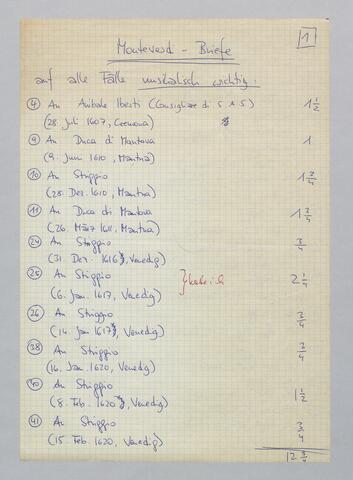 1
Monteverdi - Briefe
auf alle Fälle musikalisch wichtig:
4 An Anibale Iberti (Consigliere di S A S) 1 1/2
(28. Juli 1607, Cremona)
9 An Duca di Mantova 1
(9. Juni 1610, Mantua)
10 An Striggio 1 3/4
(28. Dez. 1610, Mantua)
11 An Duca di Mantova 1 3/4
(26. März 1611, Mantua)
24 An Striggio 3/4
(31. Dez. 1616, Venedig)
25 An Striggio 2 1/4
(6. Jan. 1617, Venedig)
26 An Striggio 3/4
(14. Jan. 1617, Venedig)
38 An Striggio 3/4
(16. Jan. 1620, Venedig)
40 An Striggio 1 1/2
(8. Feb. 1620, Venedig)
41 An Striggio 3/4
(15. Feb. 1620, Venedig)
12 3/4